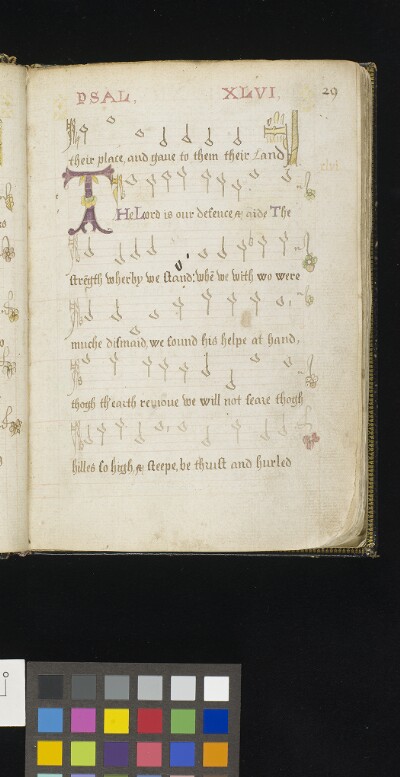 PSAL. XLVI. 29
their place, and gaue to them their Land
xlvi.
THe Lord is our defence & aide The
strēgth wherby we stand: whē we with wo were
muche dismaid, we found his helpe at hand,
thogh th'earth remoue we will not feare thogh
hilles so high & steepe, be thrust and hurled